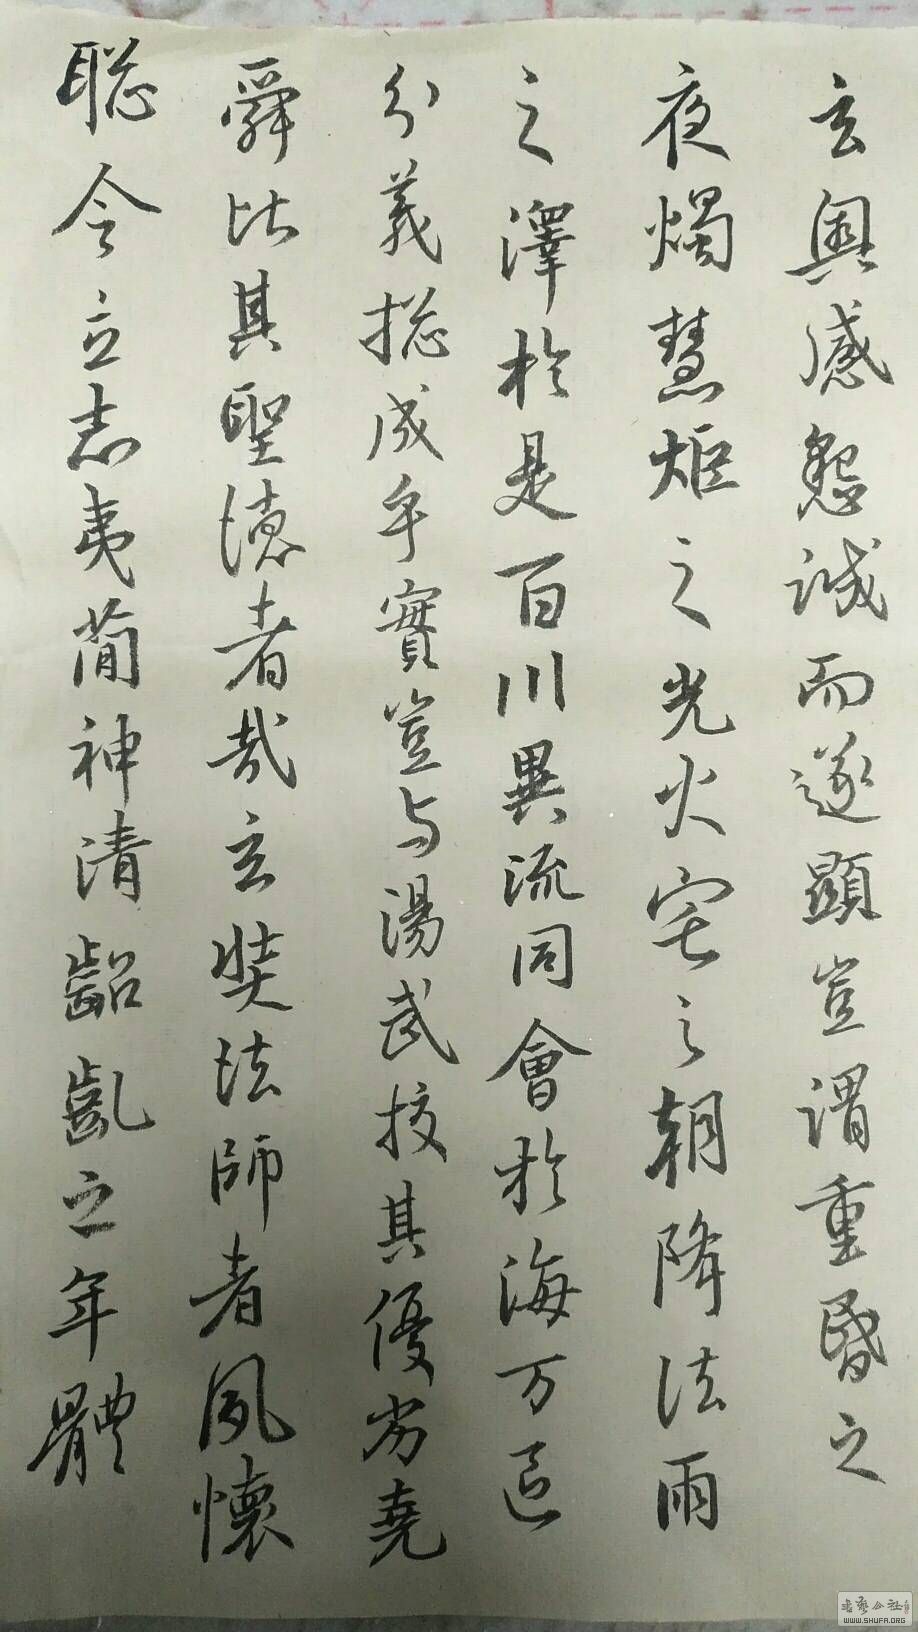 玄奥感懇誠而遂顯豈謂重昏之
夜燭慧炬之光火宅之朝降法雨
之澤於是百川異流同會於海万區
分義摠成乎實豈与湯武挍其優劣堯
舜比其聖德者哉玄奘法師者夙懷
聡令立志夷簡神清齠齓之年體
書藝公社
WWW.SHUFA.ORG